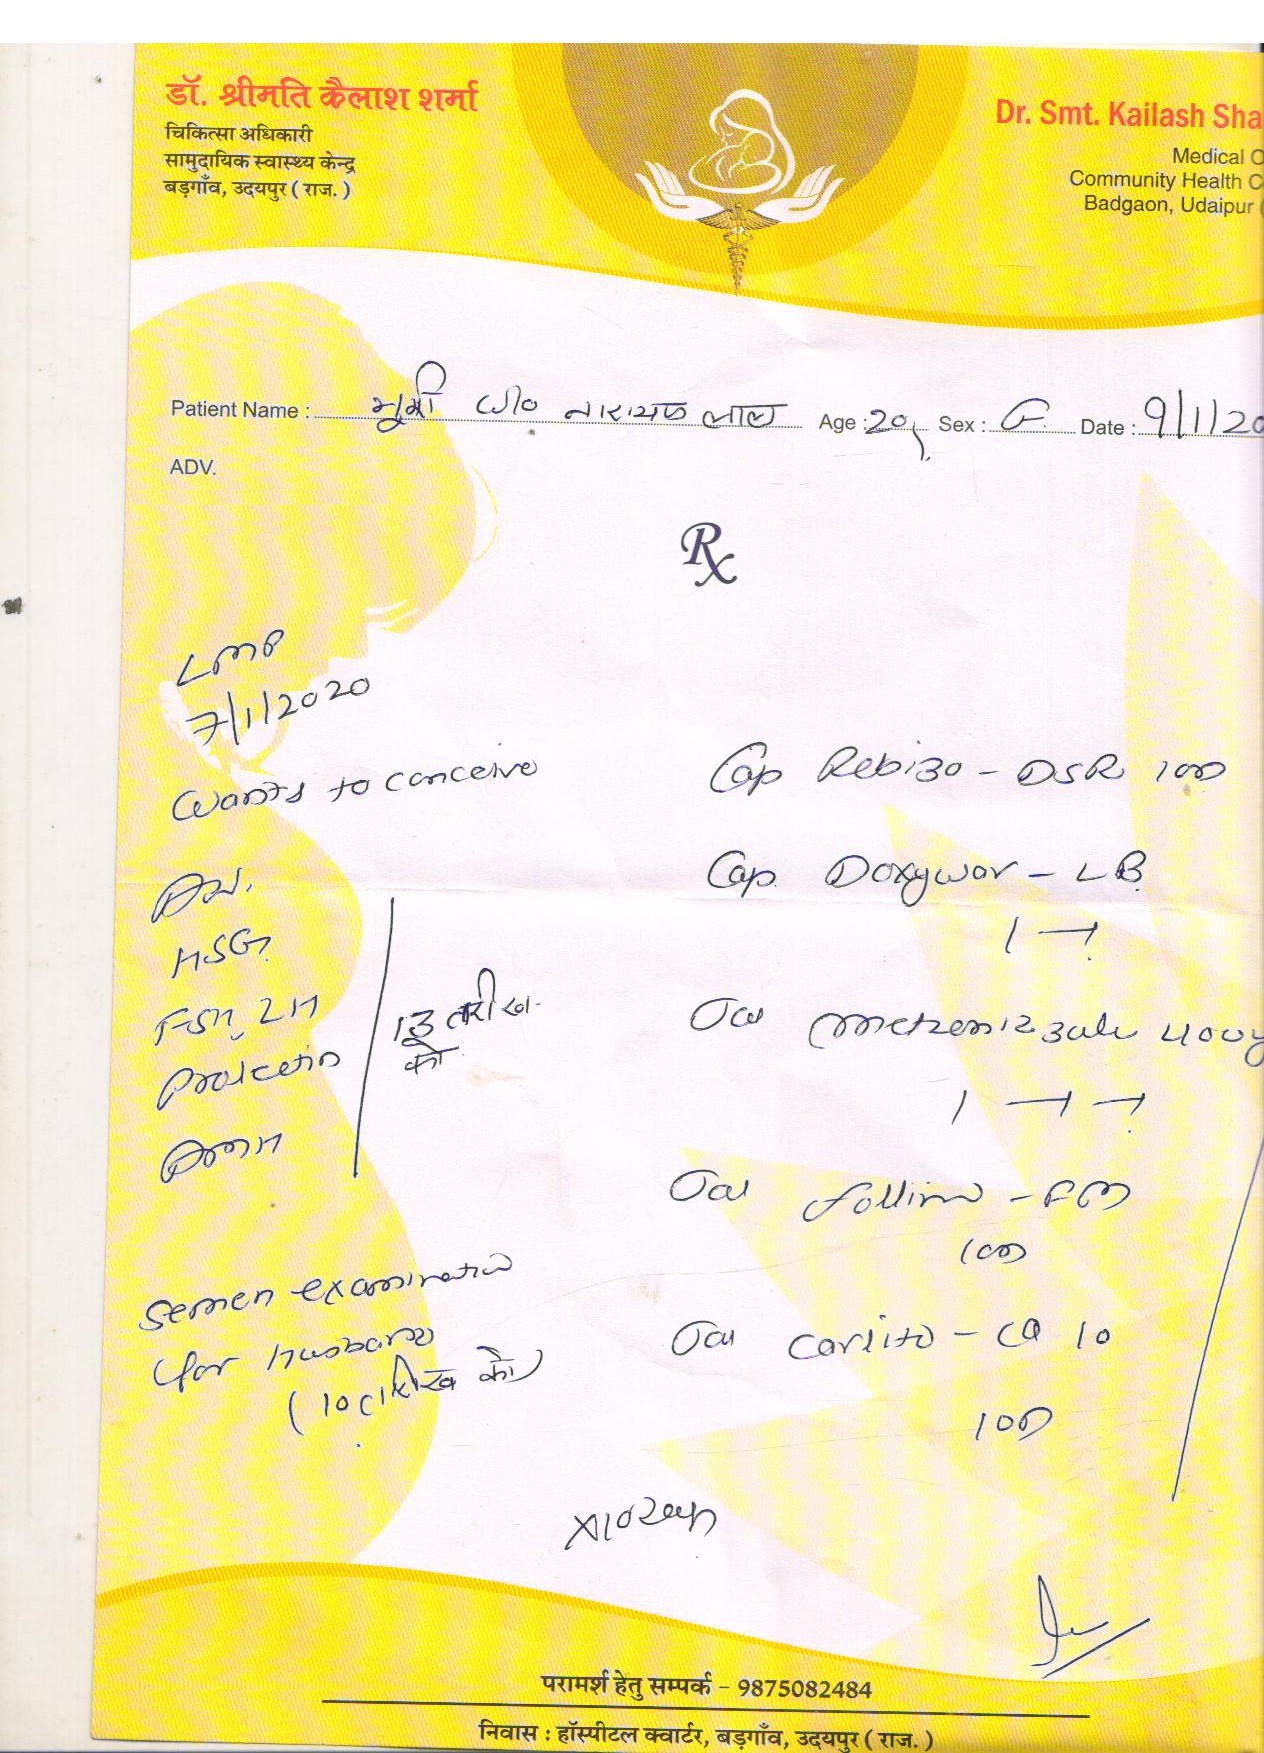 डॉ. श्रीमति कैलाश शर्मा
चिकित्सा अधिकारी
सामुदायिक स्वास्थ्य केन्द्र
बड़गाँव, उदयपुर ( राज. )
Dr. Smt. Kailash Sha
Medical O
Community Health C
Badgaon, Udaipur (
Patient Name : भूमी w/o नारायण लाल Age : 20 Sex : F Date : 9/1/20
ADV.
Rx
LMP
7/1/2020
wants to conceive
Adv.
HSG
FSH, LH
Prolcetin
AMH
13 तारीख
को
Semen examination
for husband
( 10 तारीख को )
Cap Rebizo - DSR 1OD
Cap. Doxywor - LB
Tab 400
Tab - FM
1OD
Tab - CQ 10
1OD
x10
परामर्श हेतु सम्पर्क – 9875082484
निवास : हॉस्पीटल क्वार्टर, बड़गाँव, उदयपुर ( राज. )